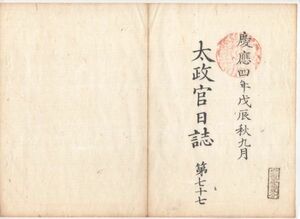 慶應四年戊辰秋九月
太政官日誌
第七十七